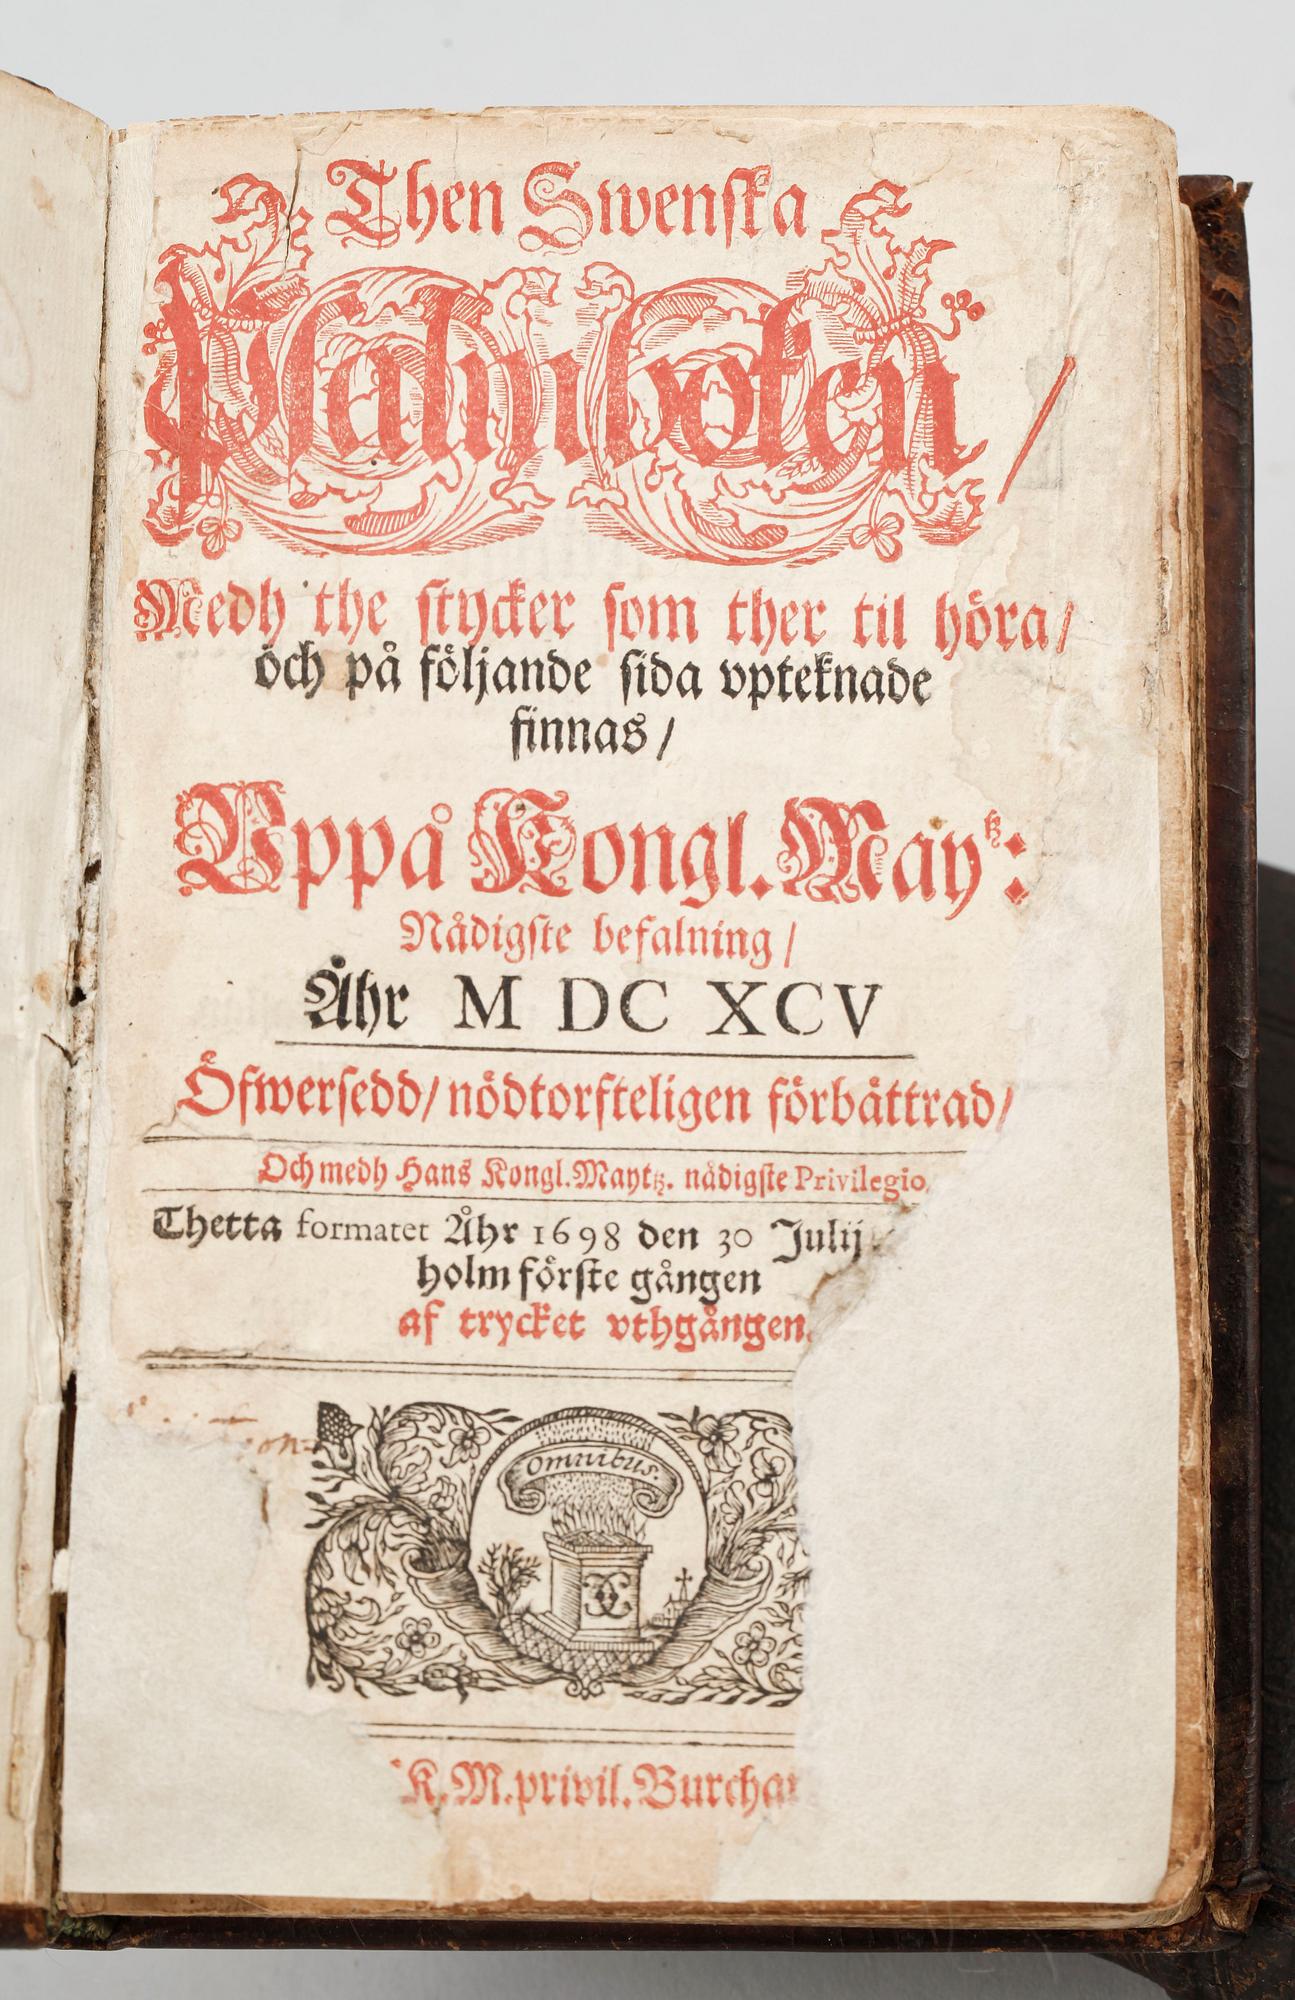 Then Swenska
Psalmboken /
Medh the stycker som ther til höra /
och på följande sida vpteknade
finnas /
Vppå Kongl. May:tz:
Nådigste befalning /
Åhr M DC XCV
Öfwersedd / nödtorfteligen förbättrad /
Och medh Hans Kongl. Maytz. nådigste Privilegio.
Thetta formatet Åhr 1698 den 30 Julij
holm förste gången
af trycket vthgången.
Omnibus.
K. M. privil. Burcha